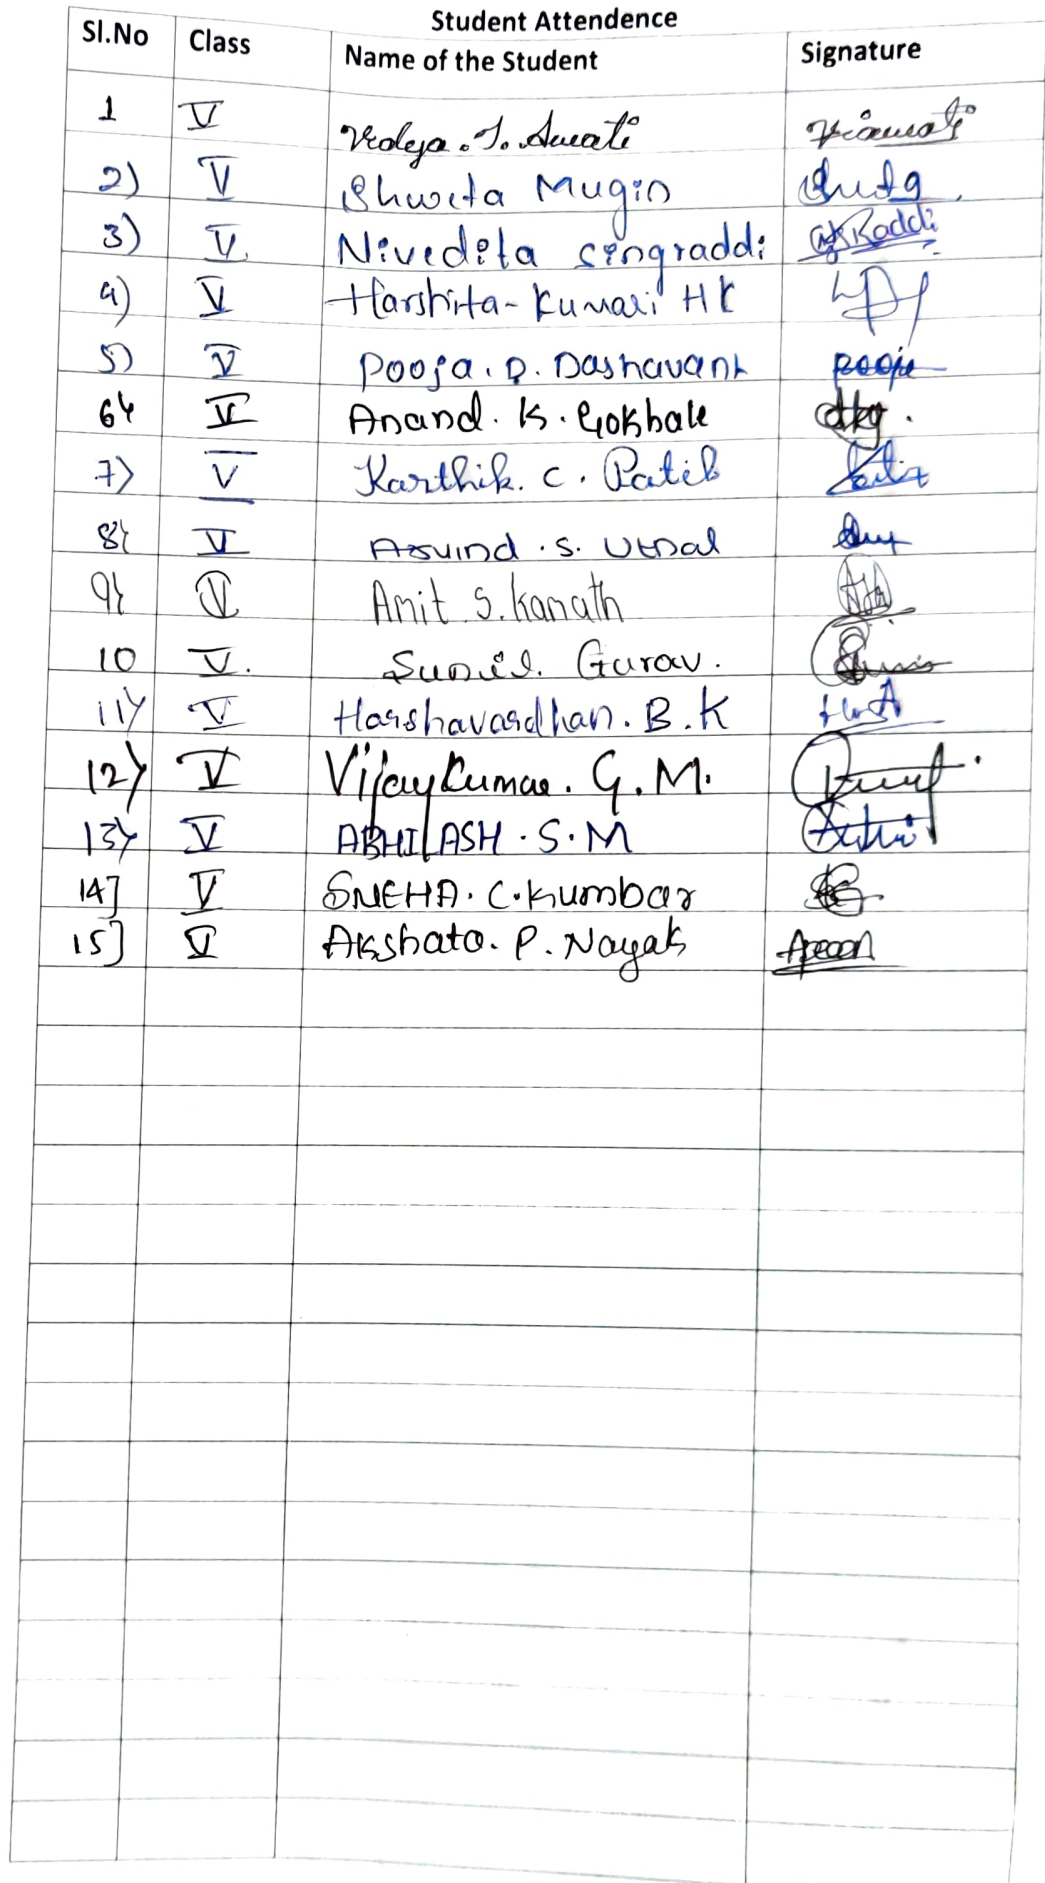 Student Attendence
Sl.No Class Name of the Student Signature
1 V Vidya . I. Awati
2) V Shweta Mugin
3) V. Nivedita singraddi
4) V Harshita-Kumari HK
5) V Pooja . D. Dashavant pooja
6) V Anand. K. Gokhale
7) V Karthik. C. Patil
8) V Arvind .S. Utnal
9) V Amit S. Kamath
10 V. Sunil. Gurav.
11) V Harshavardhan. B.K
12) V Vijaykumar. G.M.
13) V ABHILASH . S.M
14] V SNEHA. C.Kumbar
15] V Akshata. P. Nayak